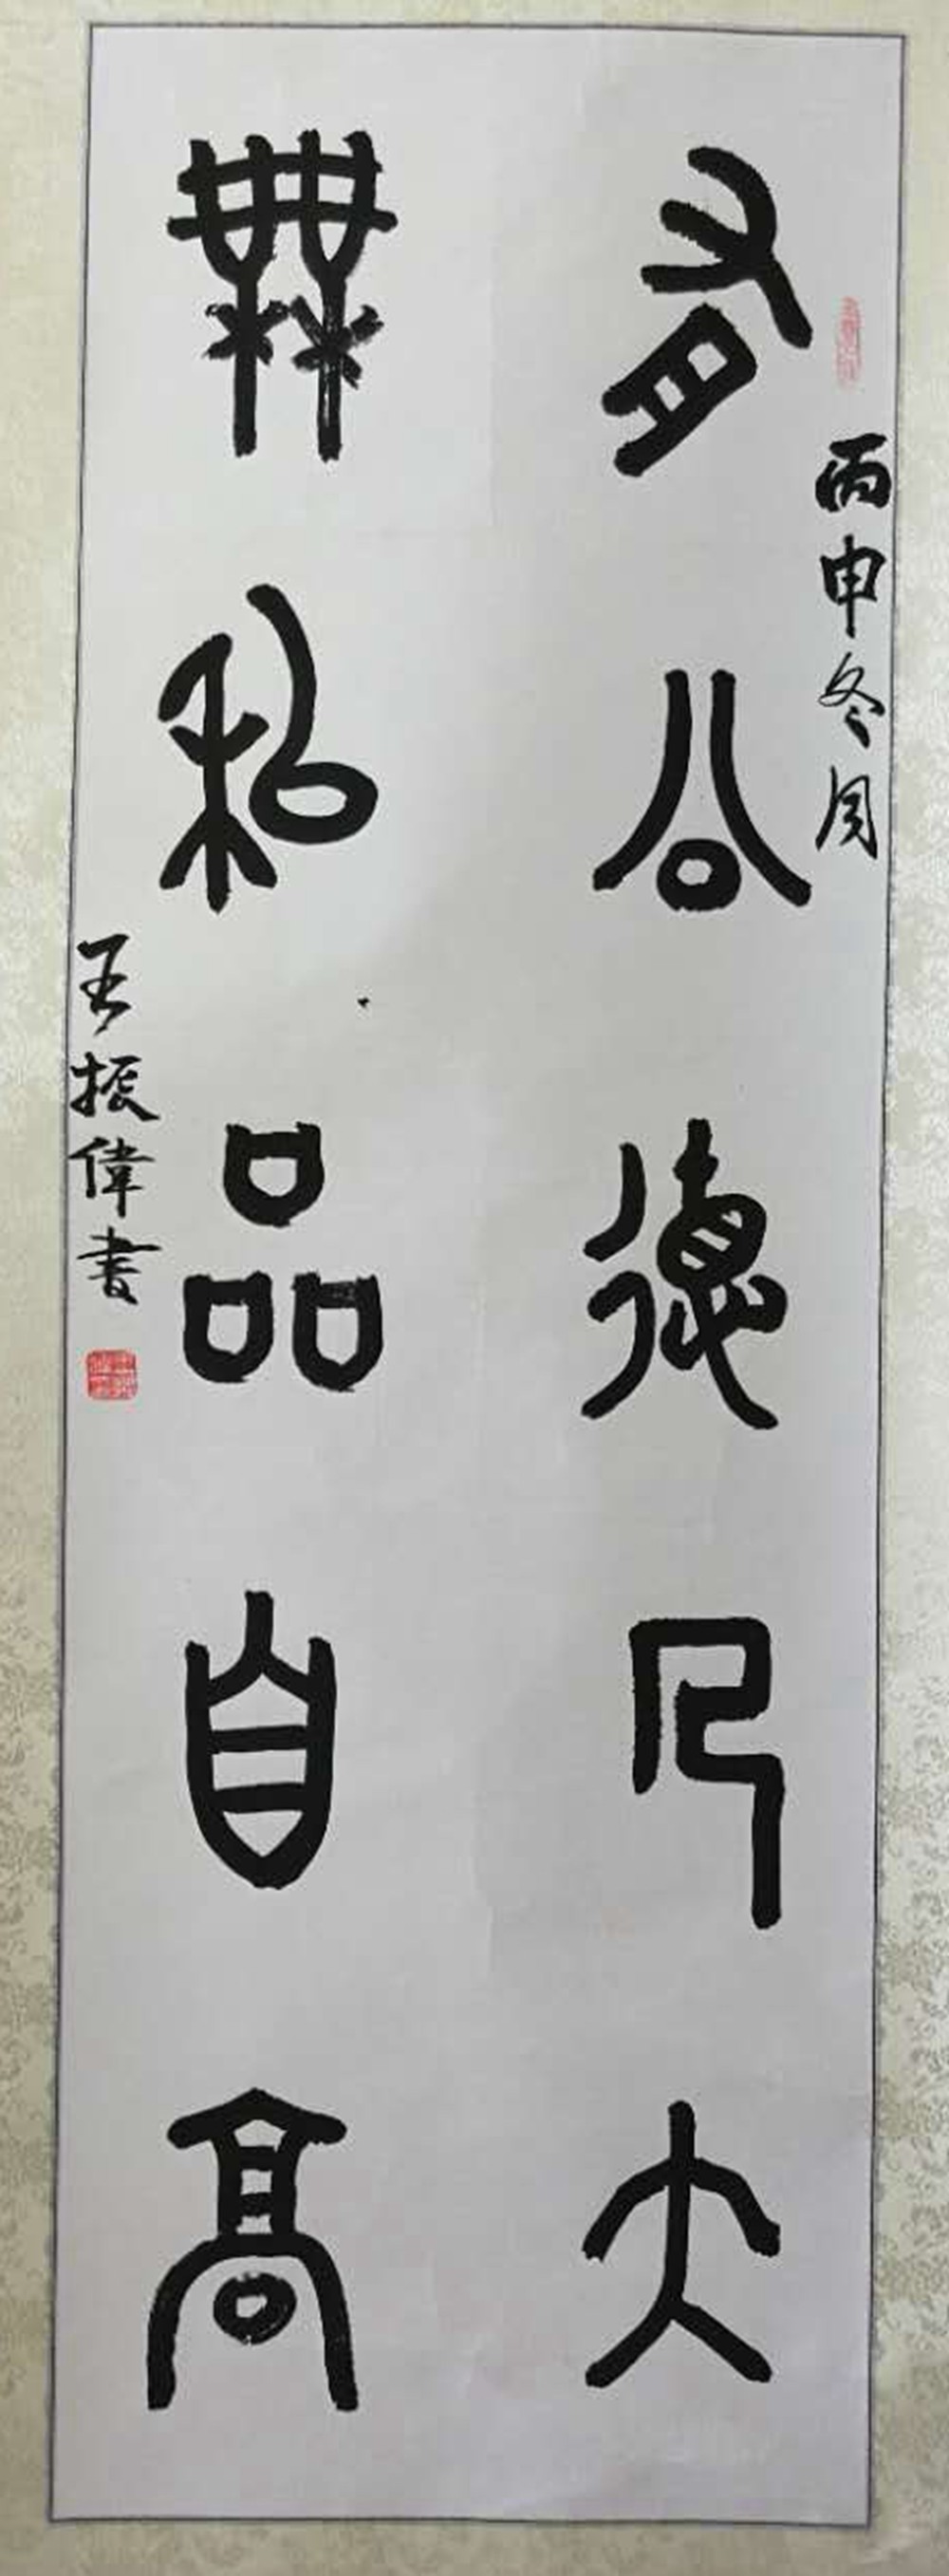 丙申冬月
有公德乃大
無私品自高
王振偉書